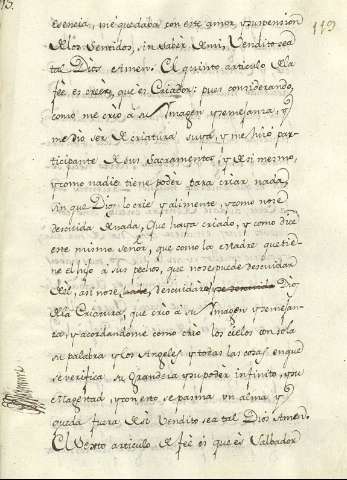 113.
119
esencia, me quedaba con este amor, y suspension
de los sentidos, sin saber de mi, Vendito sea
tal Dios Amen. El quinto articulo de la
feè es creèr, que es Criador: pues considerando,
como me criò à su Ymagen y semejanza, y
me dio sèr de criatura suya, y me hizo par-
ticipante de sus Sacramentos, y de si mesmo,
y como nadie tiene podèr para criar nada,
sin que Dios lo crie y alimente, y como no se
descuida de nada, que haya criado, y como dice
este mismo señor, que como la Madre que tie-
ne el hijo à sus pechos, que no se puede descuidar
de èl, asi no se descuidarà Dios
de la Criatura, que criò à su Ymagen y semejan-
za, y acordandome como criò los cielos con sola
su palabra y los Angeles y todas las cosas en que
se verifica su Grandeza y su poder infinito, y su
Magestad, y con esto se pasma un alma y
queda fuera de si Vendito sea tal Dios Amen.
El sexto articulo de feè es que es Salbador